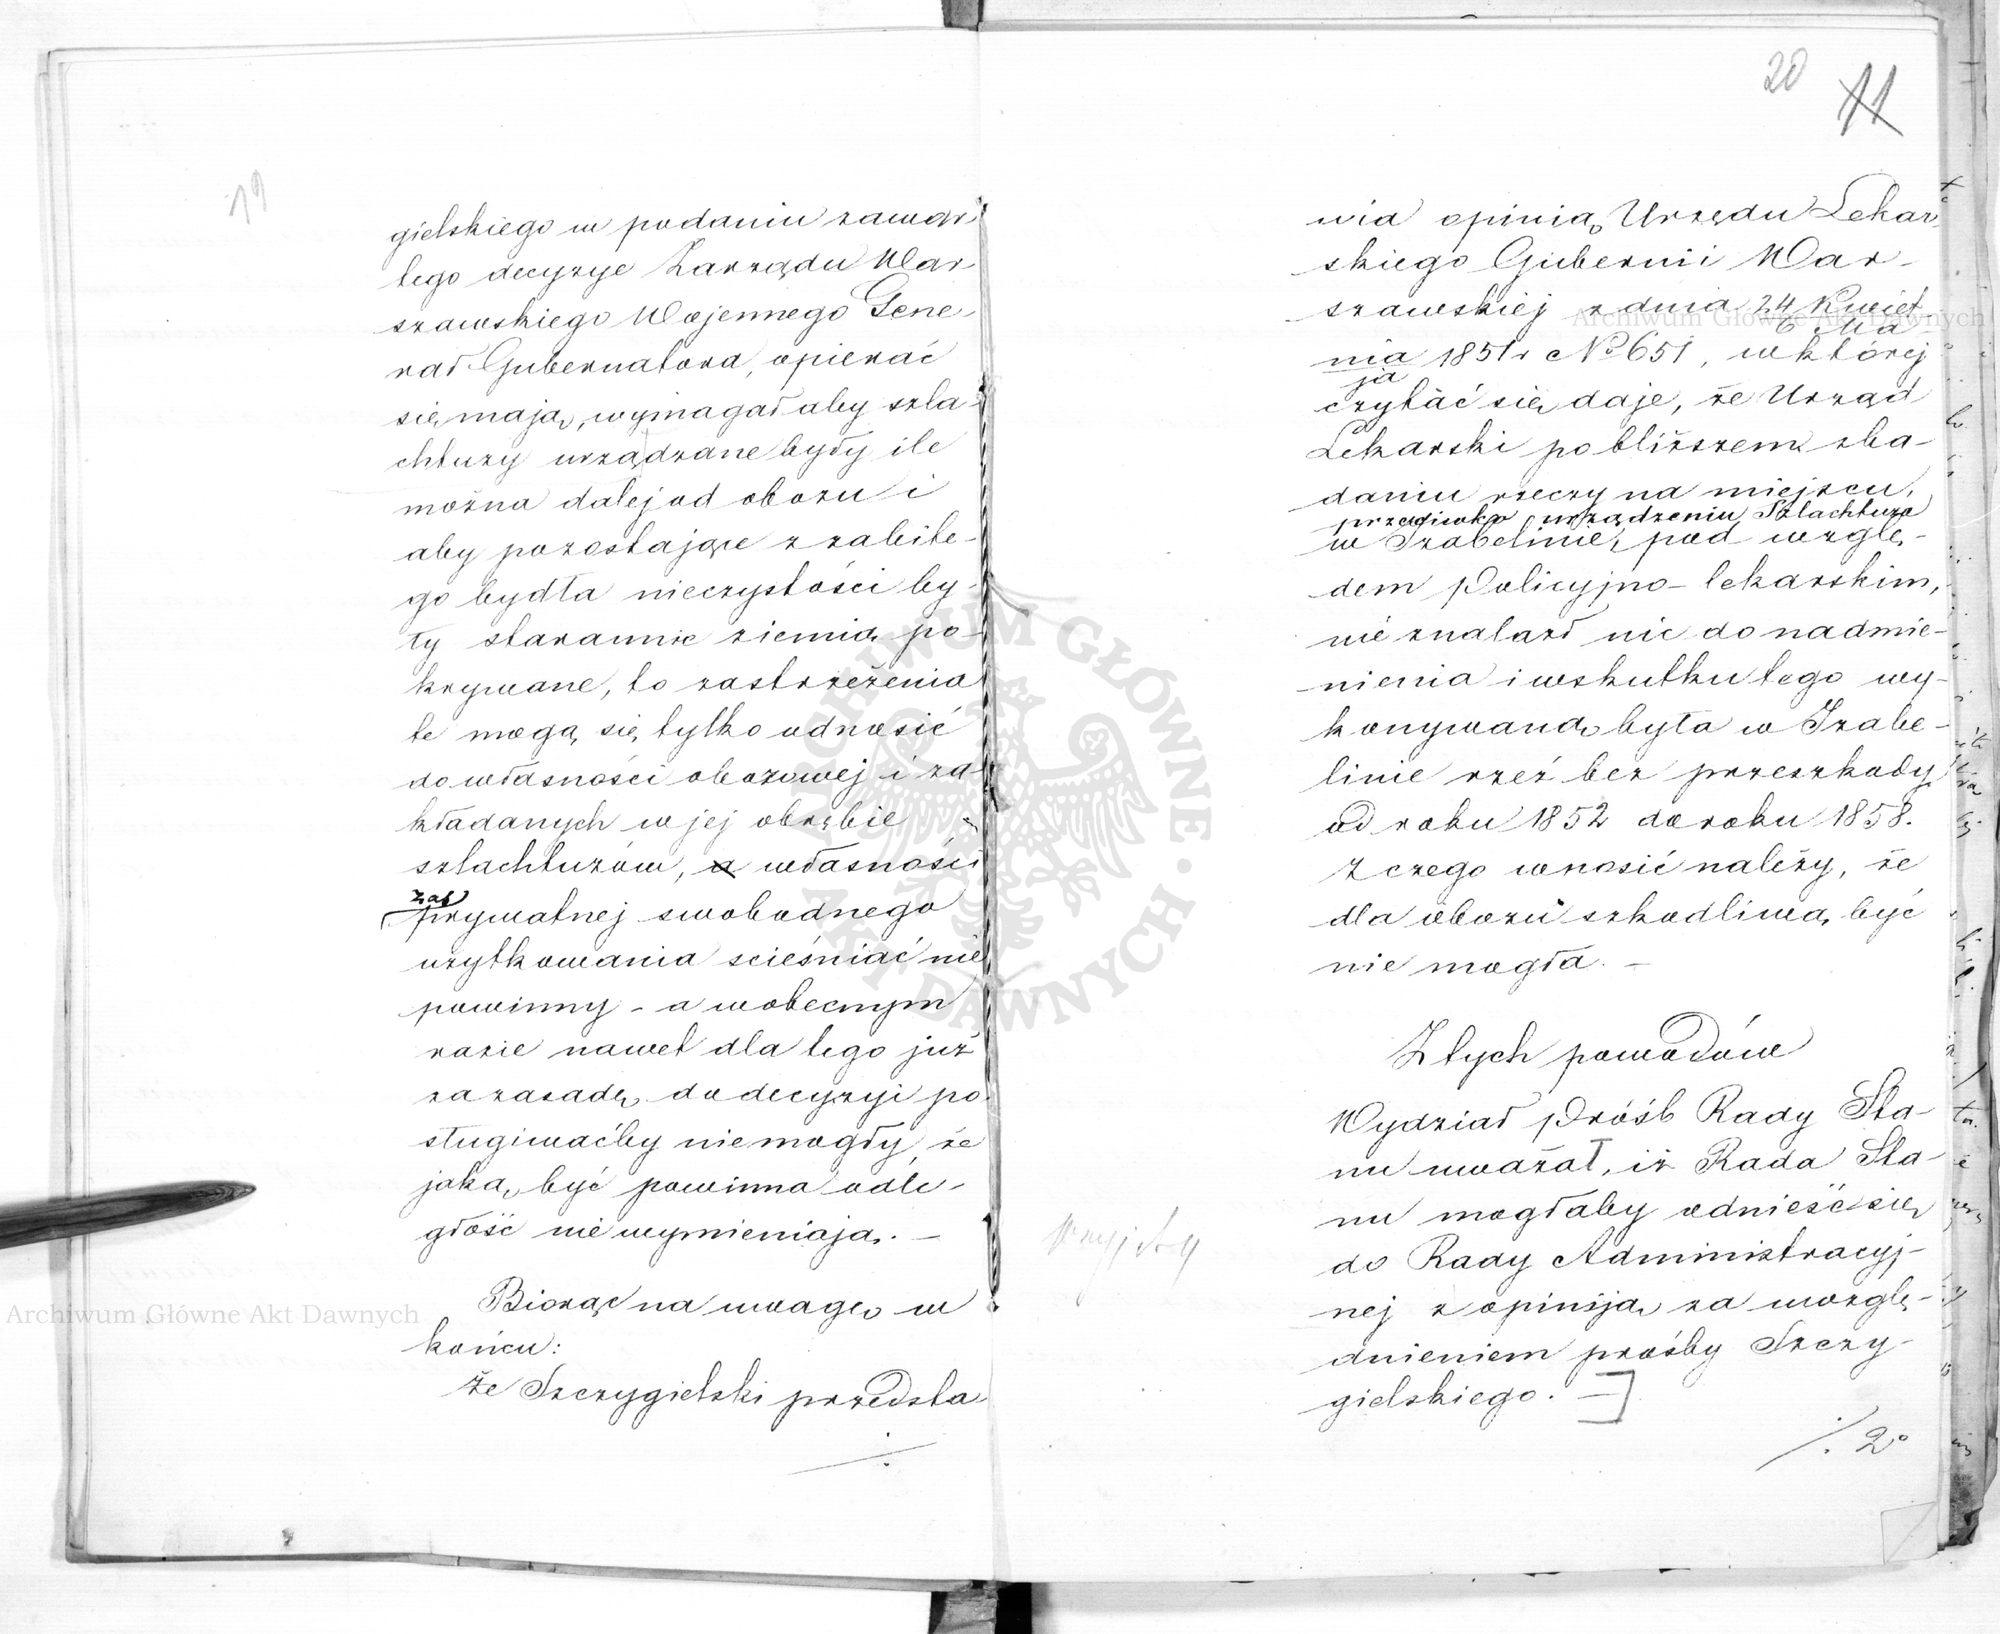 19
gielskiego w podaniu zawar-
tego decyzye Zarządu War-
szawskiego Wojennego Gene-
rał Gubernatora, opierać
się mają, wymagał aby szla-
chtuzy urządzane były ile
można dalej od obozu i
aby pozostające z zabite-
go bydła nieczystości by-
ły starannie ziemią po-
krywane, to zastrzeżenia
te mogą się tylko odnosić
do własności obozowej i za-
kładanych w jej obrębie
szlachtuzów, a własności
zaś
prywatnej swobodnego
użytkowania scieśniać nie
powinny - a w obecnym
razie nawet dla tego już
za zasadę do decyzyi po-
sługiwaćby nie mogły, że
jaką być powinna odle-
głość nie wymieniają. -
Biorąc na uwagę w
końcu:
że Szczygielski przedsta-
./.
20
11
wia opinią Urzędu Lekar-
skiego Gubernii War-
szawskiej z dnia 24 Kwiet-
6 Ma-
nia 1851 r No 651, w której
ja
czytać się daje, że Urząd
Lekarski po bliższem zba-
daniu rzeczy na miejscu,
przeciwko urządzeniu Szlachtuza
w Izabelinie, pod wzglę-
dem Policyjno-lekarskim,
nie znalazł nic do nadmie-
nienia i wskutku tego wy-
konywaną była w Izabe-
linie rzeź bez przeszkody
od roku 1852 do roku 1858.
Z czego wnosić należy, że
dla obozu szkodliwą być
nie mogła. -
Z tych powodów
Wydział Próśb Rady Sta-
nu uważał, iż Rada Sta-
nu mogłaby odnieść się
do Rady Administracyj-
nej z opiniją za uwzglę-
dnieniem prośby Szczy-
gielskiego. -]
./. 2°
Archiwum Główne Akt Dawnych
Archiwum Główne Akt Dawnych
ARCHIWUM GŁÓWNE · AKT DAWNYCH ·